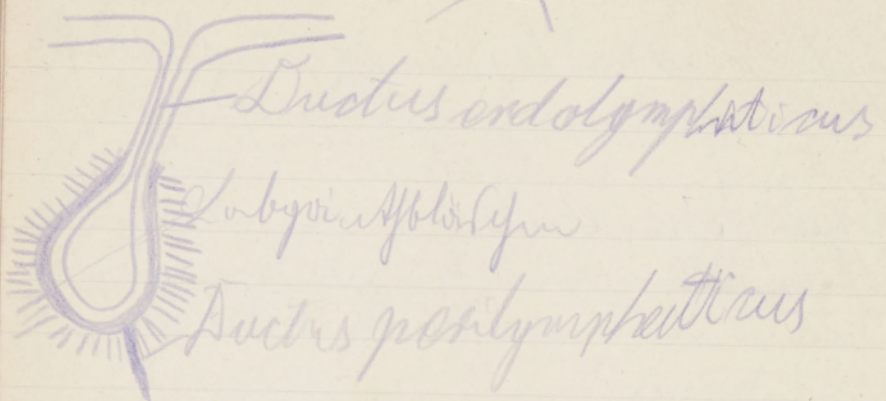 Ductus endolymphaticus
Labyrinthbläschen
Ductus perilymphaticus